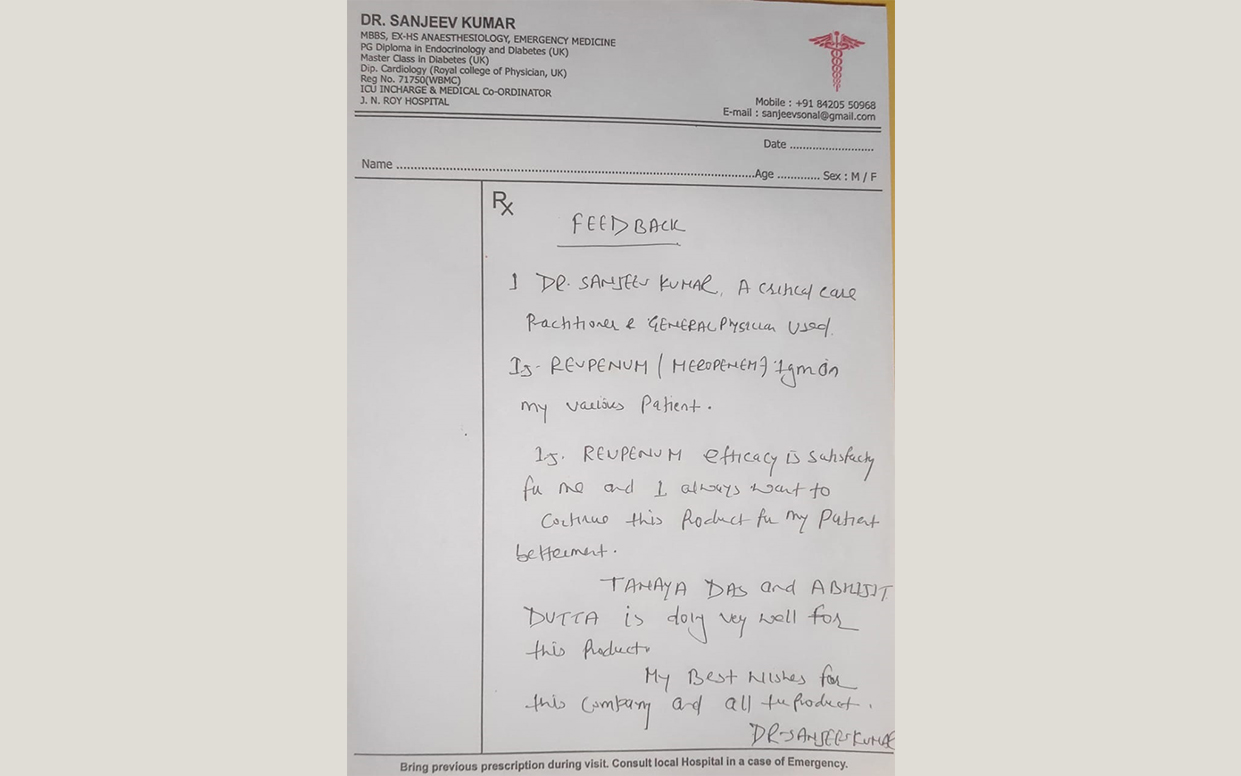 DR. SANJEEV KUMAR
MBBS, EX-HS ANAESTHESIOLOGY, EMERGENCY MEDICINE
PG Diploma in Endocrinology and Diabetes (UK)
Master Class in Diabetes (UK)
Dip. Cardiology (Royal college of Physician, UK)
Reg No. 71750(WBMC)
ICU INCHARGE & MEDICAL Co-ORDINATOR
J. N. ROY HOSPITAL
Mobile : +91 84205 50968
E-mail : sanjeevsonal@gmail.com
Date ..........................
Name ..........................Age ............. Sex : M / F
Rx
FEEDBACK
I DR. SANJEEV KUMAR, A critical care
Practitioner & GENERAL Physician Used
Ij. REVPENUM (MEROPENEM) 1gm on
my various Patient.
Ij. REVPENUM efficacy is satisfacty
fu me and I always want to
continue this Product fu my Patient
betterment.
TANAYA DAS and ABHIJIT
DUTTA is doing very well for
this Product.
My Best Wishes for
this Company and all the Product.
DR. SANJEEV KUMAR
Bring previous prescription during visit. Consult local Hospital in a case of Emergency.